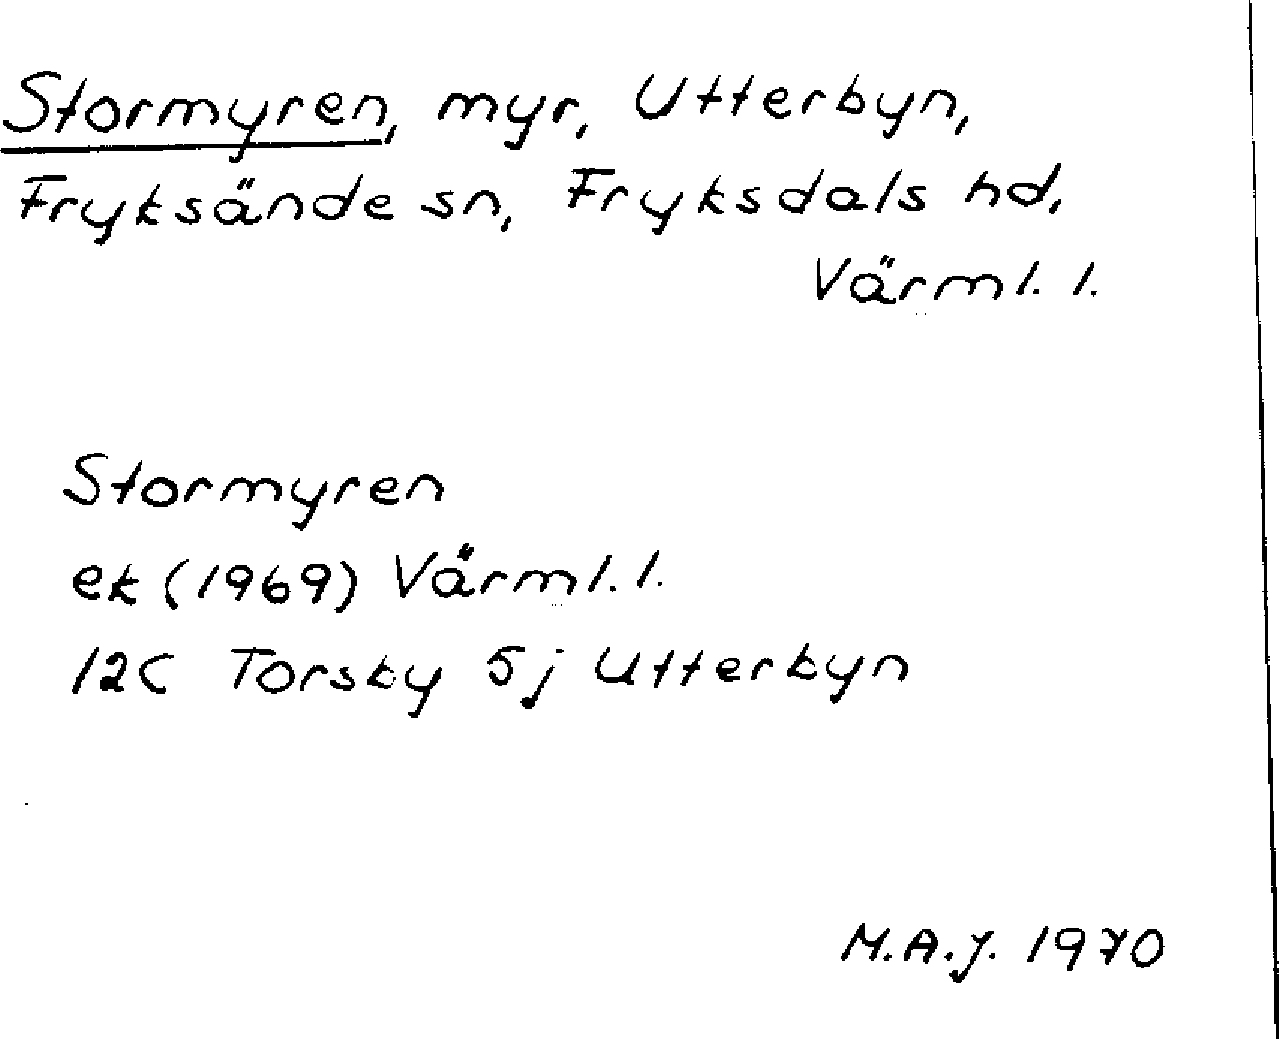 Stormyren, myr, Utterbyn,
Fryksände sn, Fryksdals hd,
Värml. l.
Stormyren
ek (1969) Värml. l.
12C Torsby 5j Utterbyn
M.A.J. 1970